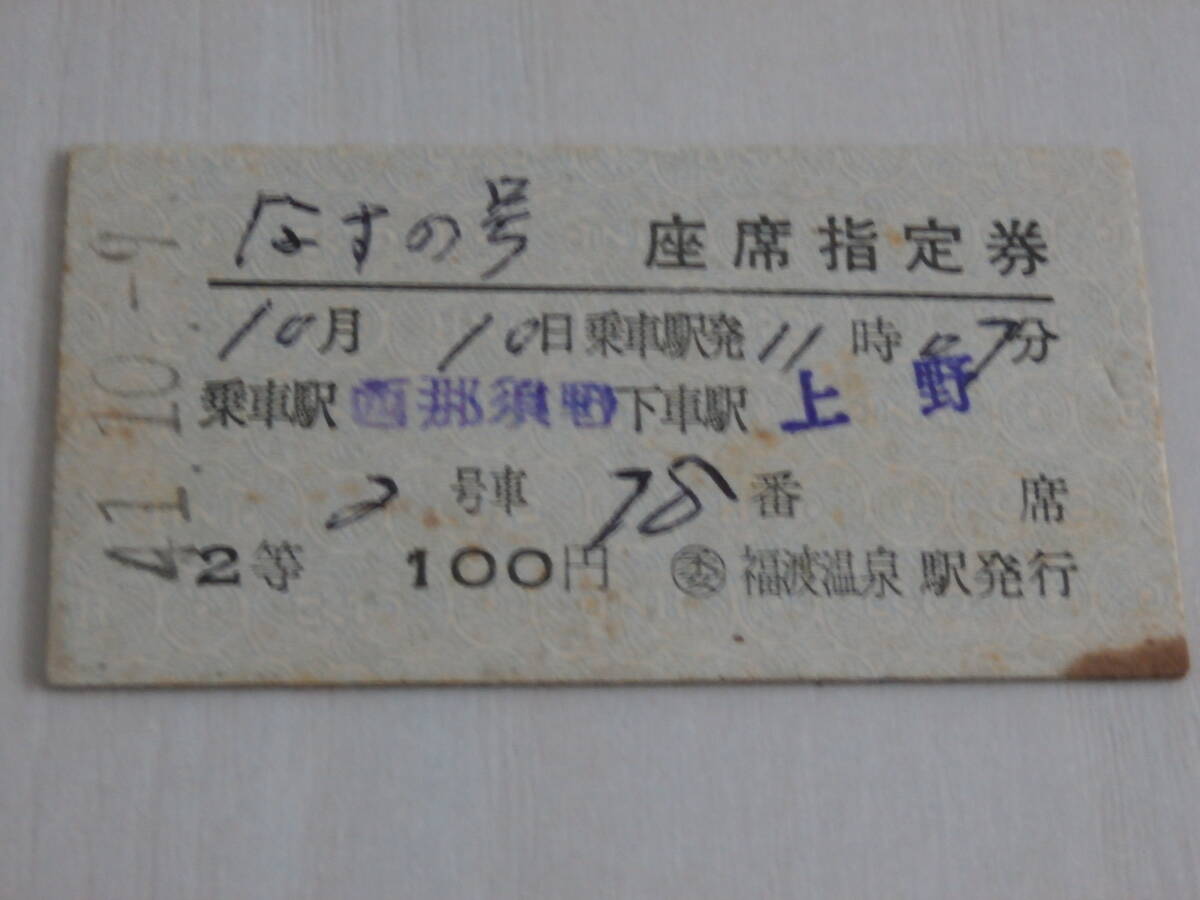 なすの号 座席指定券
10月 10日 乗車駅発 11時07分
乗車駅 西那須野 下車駅 上野
2号車 78番席
2等 100円 ㊙委 福渡温泉駅発行
41.10.-9